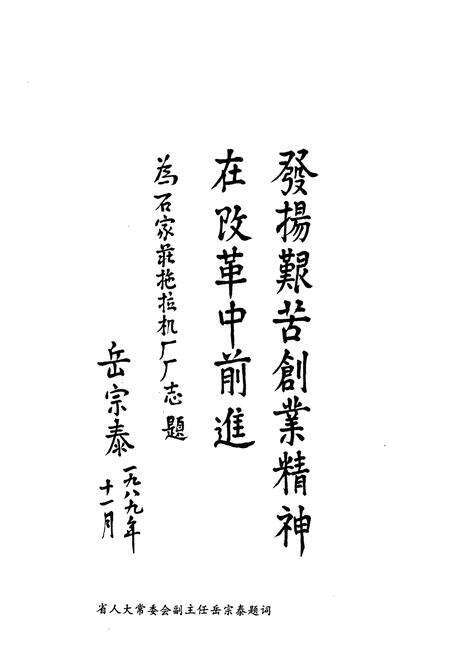 發揚艱苦創業精神
在改革中前進
為石家莊拖拉机厂厂志題
岳宗泰
一九八九年
十一月
省人大常委会副主任岳宗泰题词